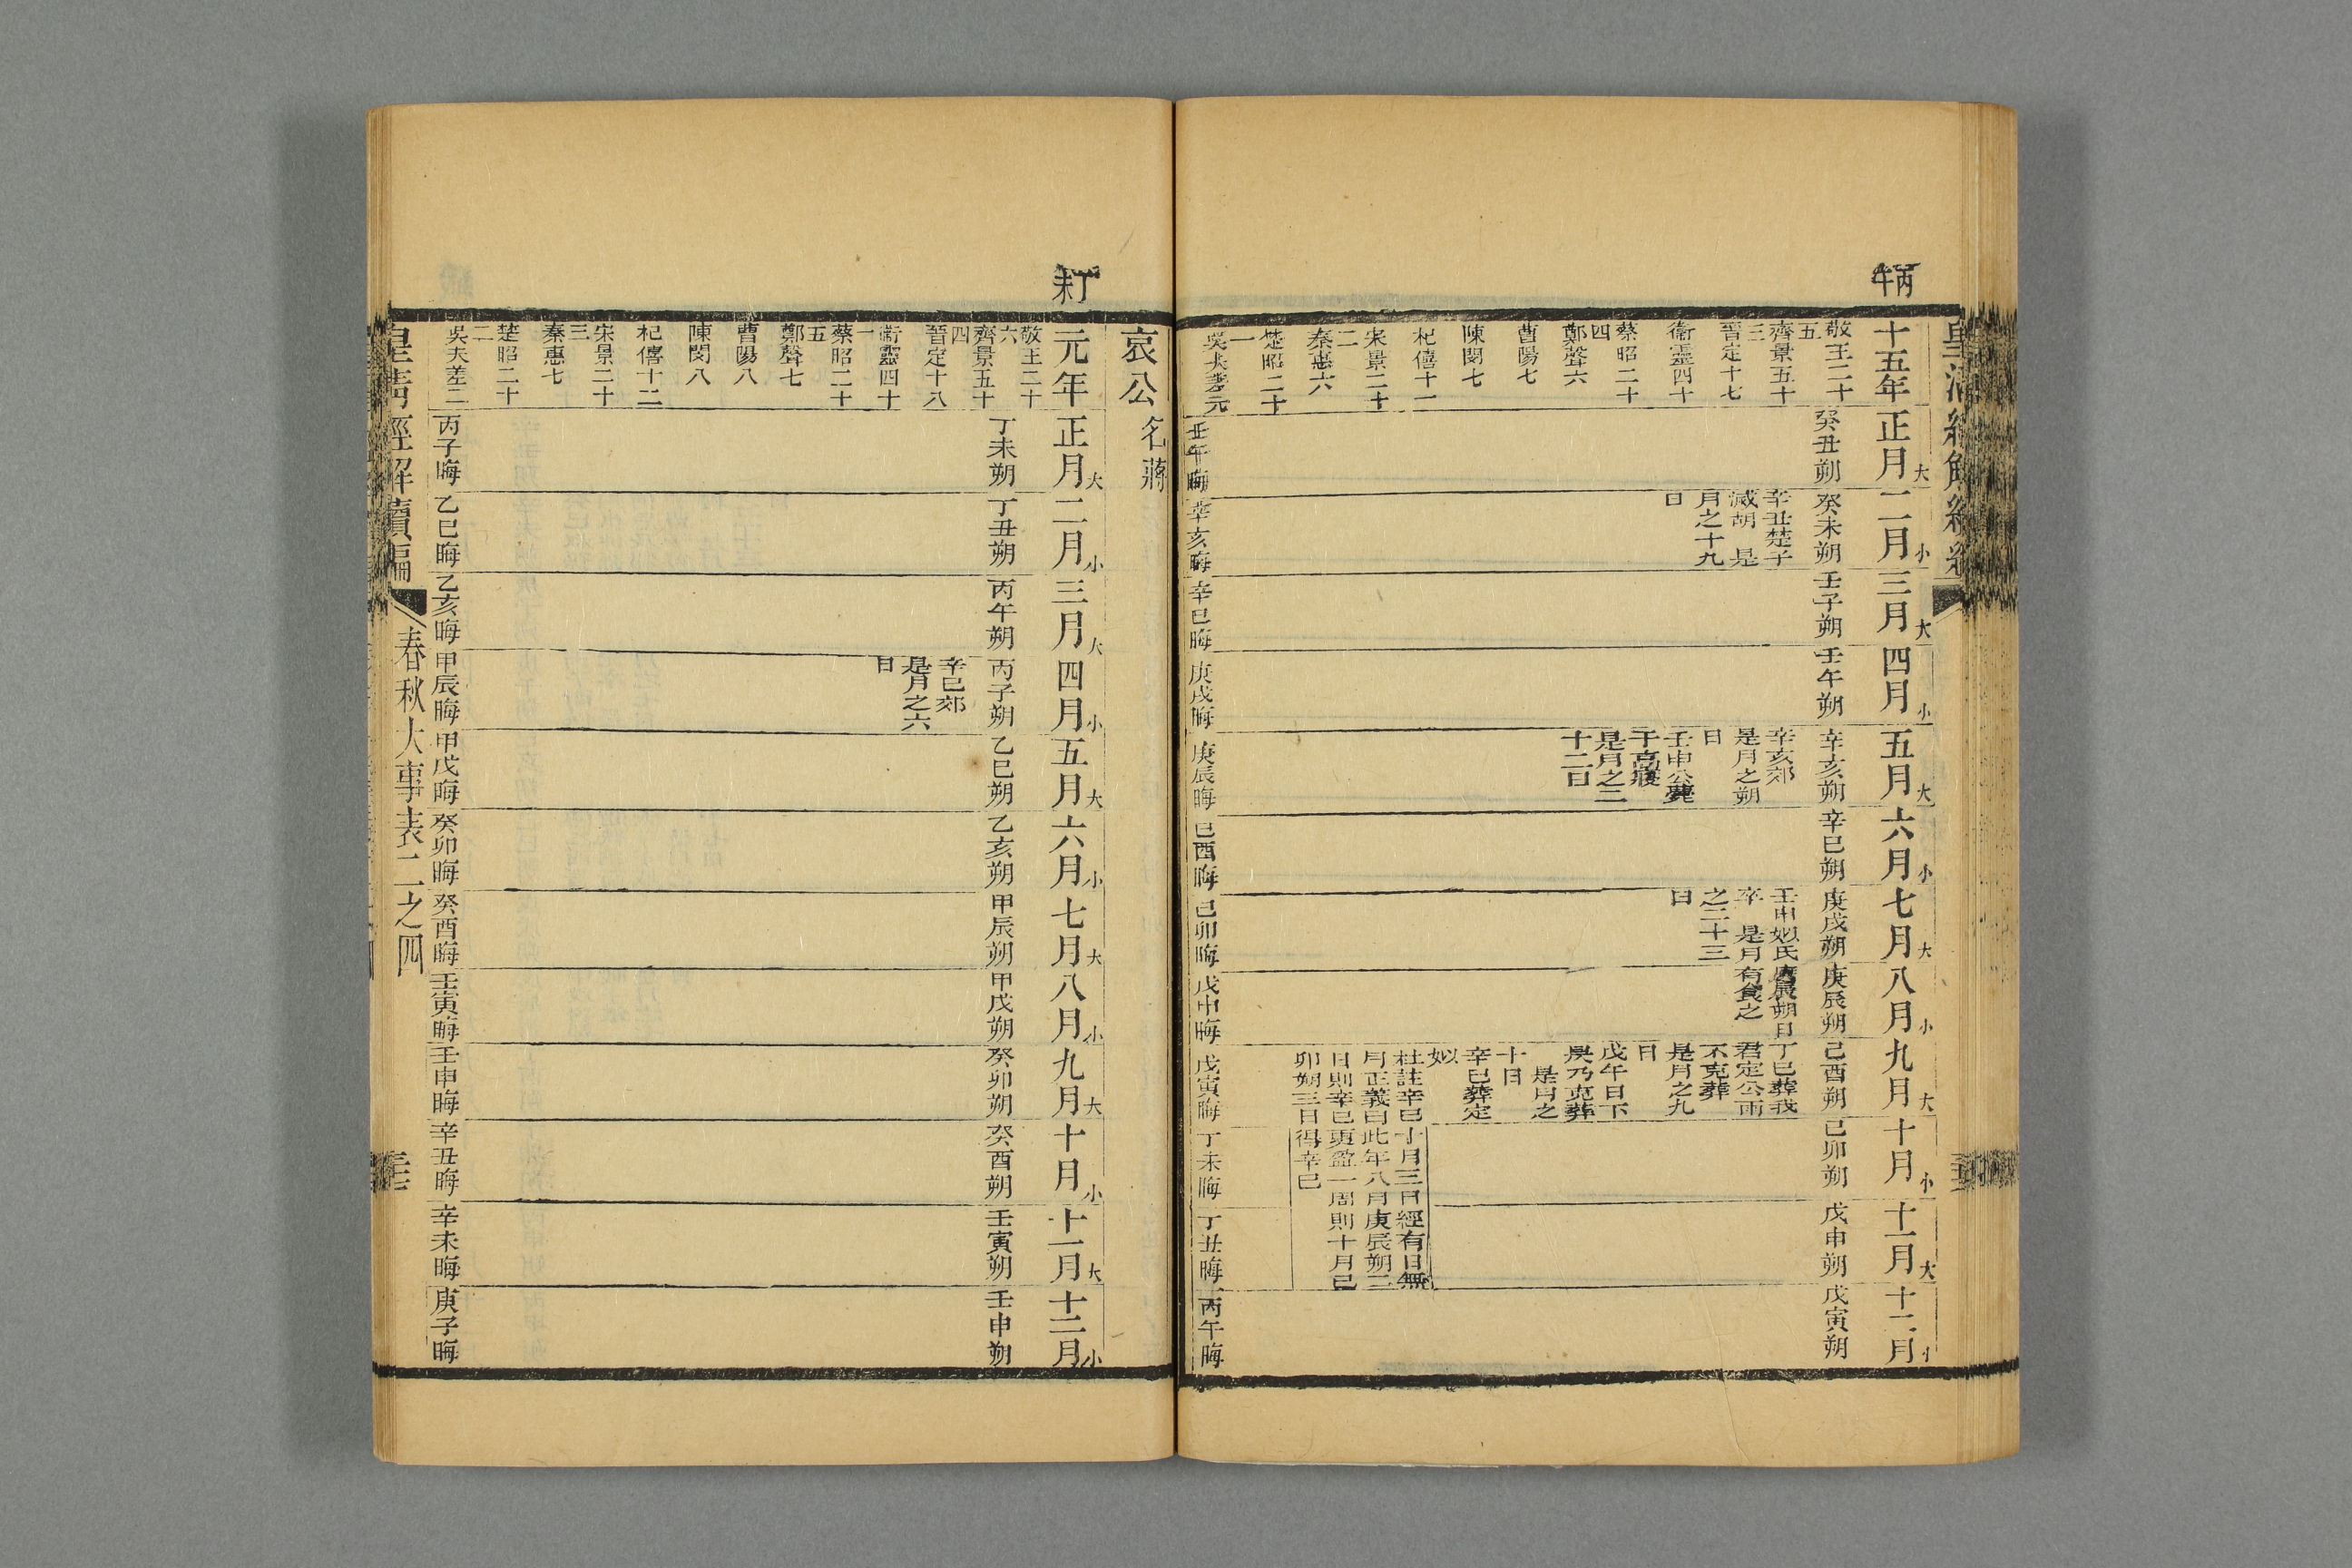 丙午
十五年
敬王二十五
齊景五十三
晉定十七
衞靈四十
蔡昭二十四
鄭聲六
曹陽七
陳閔七
杞僖十一
宋景二十二
秦惠六
楚昭二十一
吳夫差元
正月大
癸丑朔
壬午晦
二月小
癸未朔
辛丑楚子
滅胡 是
月之十九
日
辛亥晦
三月大
壬子朔
辛巳晦
四月小
壬午朔
庚戌晦
五月大
辛亥朔
辛亥郊
是月之朔
日
壬申公薨
于高寢
是月之二
十二日
庚辰晦
六月小
辛巳朔
己酉晦
七月大
庚戌朔
壬申姒氏
卒 是月
之二十三
日
己卯晦
八月小
庚辰朔
庚辰朔日
有食之
戊申晦
九月大
己酉朔
丁巳葬我
君定公雨
不克葬
是月之九
日
戊午日下
昃乃克葬
是月之
十日
辛巳葬定
姒
杜註辛巳十月三日經有日無
月正義曰此年八月庚辰朔二
日則辛巳更盈一周則十月己
卯朔三日得辛巳
戊寅晦
十月小
己卯朔
丁未晦
十一月大
戊申朔
丁丑晦
十二月小
戊寅朔
丙午晦
哀公名蔣
丁未
元年
敬王二十六
齊景五十四
晉定十八
衞靈四十一
蔡昭二十五
鄭聲七
曹陽八
陳閔八
杞僖十二
宋景二十三
秦惠七
楚昭二十二
吳夫差二
正月大
丁未朔
丙子晦
二月小
丁丑朔
乙巳晦
三月大
丙午朔
乙亥晦
四月小
丙子朔
辛巳郊
是月之六
日
甲辰晦
五月大
乙巳朔
甲戌晦
六月小
乙亥朔
癸卯晦
七月大
甲辰朔
癸酉晦
八月小
甲戌朔
壬寅晦
九月大
癸卯朔
壬申晦
十月小
癸酉朔
辛丑晦
十一月大
壬寅朔
辛未晦
十二月小
壬申朔
庚子晦
皇清經解續編
春秋大事表二之四